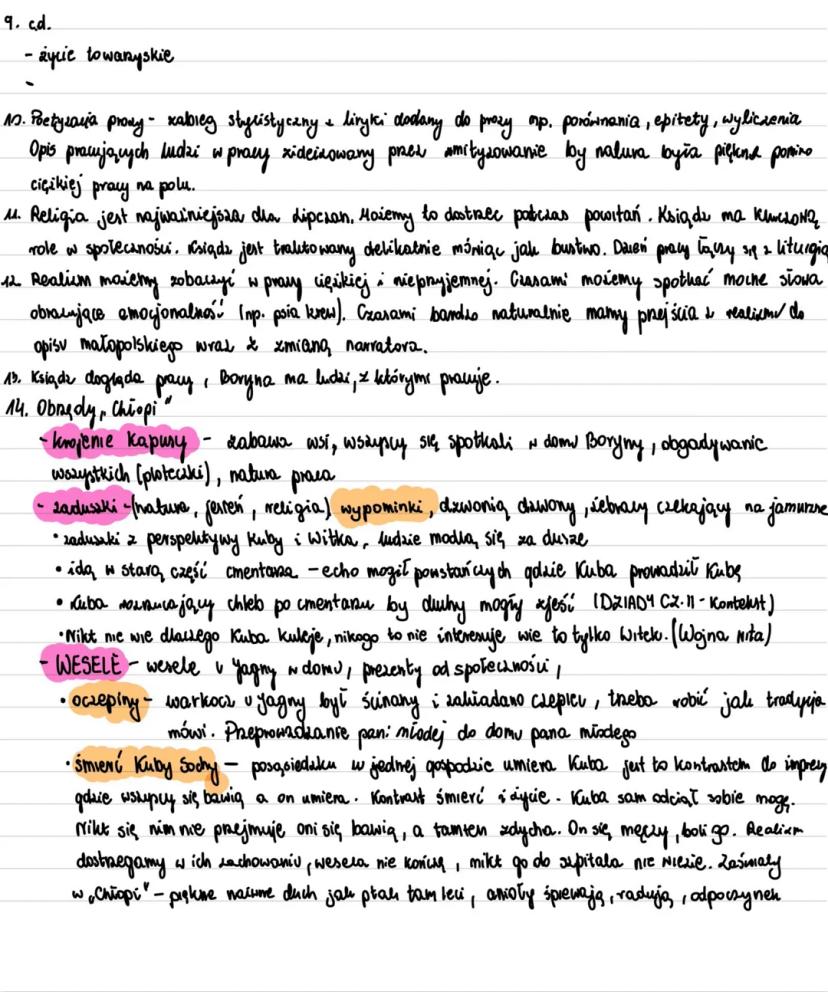 9. cd.
- życie towarzyskie
-
10. Poetyzacja prozy - zabieg stylistyczny z liryki dodany do prozy np. porównania, epitety, wyliczenia
Opis pracujących ludzi w pracy przez by natura była piękna pomimo
ciężkiej pracy na polu.
11. Religia jest najważniejsza dla Lipczan. Możemy to dostrzec podczas powitań. Ksiądz ma kluczową
role w społeczności. Ksiądz jest traktowany delikatnie mówiąc jak bustwo. Dzień pracy łączy się z liturgią
12. Realizm możemy zobaczyć w pracy ciężkiej i nieprzyjemnej. Czasami możemy spotkać mocne słowa
obrazujące emocjonalność (np. psia krew). Czasami bardzo naturalnie mamy przejścia z realizmu do
opisu małopolskiego wraz z zmianą narratora.
13. Ksiądz dogląda pracy, Boryna ma ludzi, z którymi pracuje.
14. Obrzędy „Chłopi"
- krojenie kapusy - zabawa wsi, wszyscy się spotkali w domu Boryny, obgadywanie
wszystkich (ploteczki), natura praca
- zaduszki - (natura, jesień, religia) wypominki, dzwonią dzwony, żebracy czekający na jamużne
• zaduszki z perspektywy Kuby i Witka, ludzie modlą się za dusze
• idą w starą część cmentarza - echo mogił powstańczych gdzie Kuba prowadził Kubę
• Kuba rozrzucający chleb po cmentarzu by duchy mogły zjeść (DZIADY CZ. II - Kontekst)
• Nikt nie wie dlaczego Kuba kuleje, nikogo to nie interesuje wie to tylko Witek. (Wojna)
- WESELE - wesele u Jagny w domu, prezenty od społeczności,
• oczepiny - warkocz u Jagny był ścinany i zakładano czepiec, trzeba robić jak tradycja
mówi. Przeprowadzanie pani młodej do domu pana młodego
• śmierć Kuby Sochy - w jednej umiera Kuba jest to kontrastem do imprezy
gdzie wszyscy się bawią a on umiera. Kontrast śmierć i życie. Kuba sam odciął sobie nogę.
Nikt się nim nie przejmuje oni się bawią, a tamten zdycha. On się męczy, boli go. Realizm
dostrzegamy w ich zachowaniu, wesela nie kończą, nikt go do szpitala nie wiezie. Zaświaty
w „Chłopi" - piękne naiwne duch jak ptak tam leci, anioły śpiewają, radują, odpoczynek